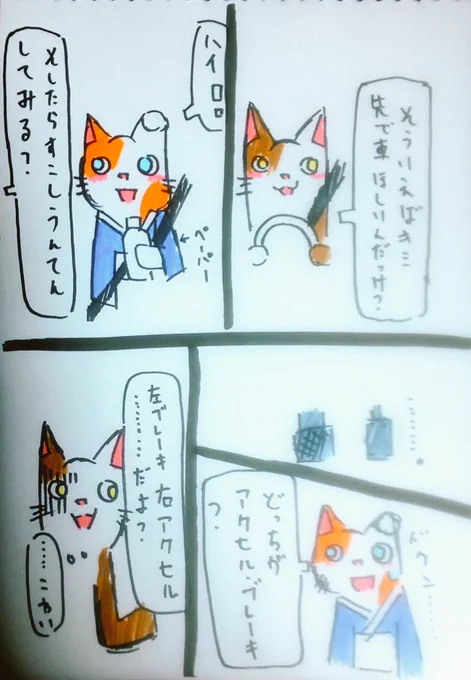 そういえばそこ
先で車ほしいんだっけ?
ハイ
そしたらすこしうんてん
してみる?
ペーパー
‥‥‥‥。
ドクン‥‥‥
どっちが
アクセル・ブレーキ
?
左ブレーキ 右アクセル
‥‥‥‥‥だよ?
‥‥こわい